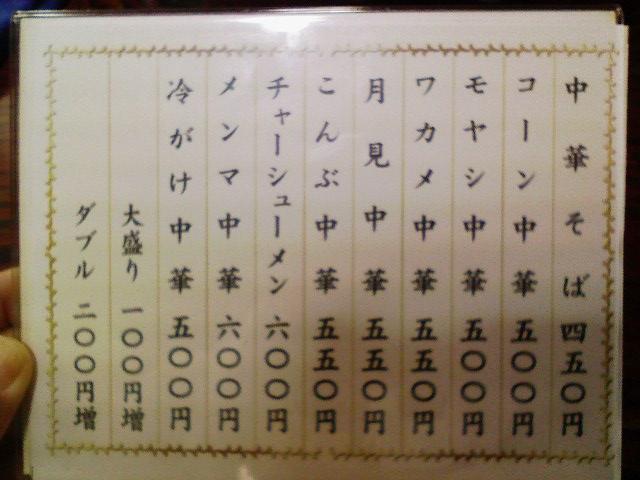 中華そば 四五〇円
コーン中華 五〇〇円
モヤシ中華 五〇〇円
ワカメ中華 五五〇円
月見中華 五五〇円
こんぶ中華 五五〇円
チャーシューメン 六〇〇円
メンマ中華 六〇〇円
冷がけ中華 五〇〇円
大盛り 一〇〇円増
ダブル 二〇〇円増